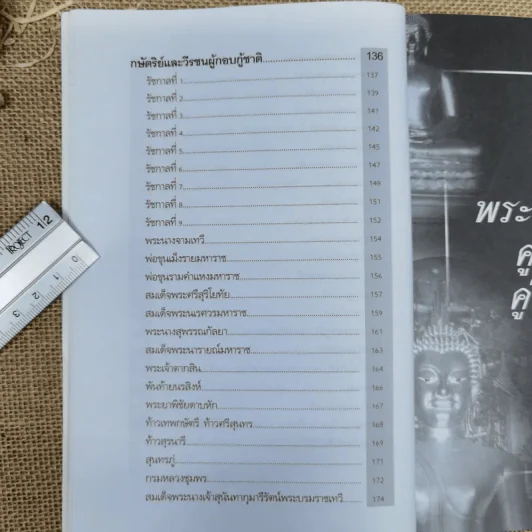 กษัตริย์และวีรชนผู้กอบกู้ชาติ 136
รัชกาลที่ 1 137
รัชกาลที่ 2 139
รัชกาลที่ 3 141
รัชกาลที่ 4 142
รัชกาลที่ 5 145
รัชกาลที่ 6 147
รัชกาลที่ 7 149
รัชกาลที่ 8 151
รัชกาลที่ 9 152
พระนางจามเทวี 154
พ่อขุนเม็งรายมหาราช 155
พ่อขุนรามคำแหงมหาราช 156
สมเด็จพระศรีสุริโยทัย 157
สมเด็จพระนเรศวรมหาราช 159
พระนางสุพรรณกัลยา 161
สมเด็จพระนารายณ์มหาราช 163
พระเจ้าตากสิน 164
พันท้ายนรสิงห์ 166
พระยาพิชัยดาบหัก 167
ท้าวเทพกษัตรี ท้าวศรีสุนทร 168
ท้าวสุรนารี 169
สุนทรภู่ 171
กรมหลวงชุมพร 172
สมเด็จพระนางเจ้าสุนันทากุมารีรัตน์พระบรมราชเทวี 174
พระ
คู่
คู่
12
0
1
2
3